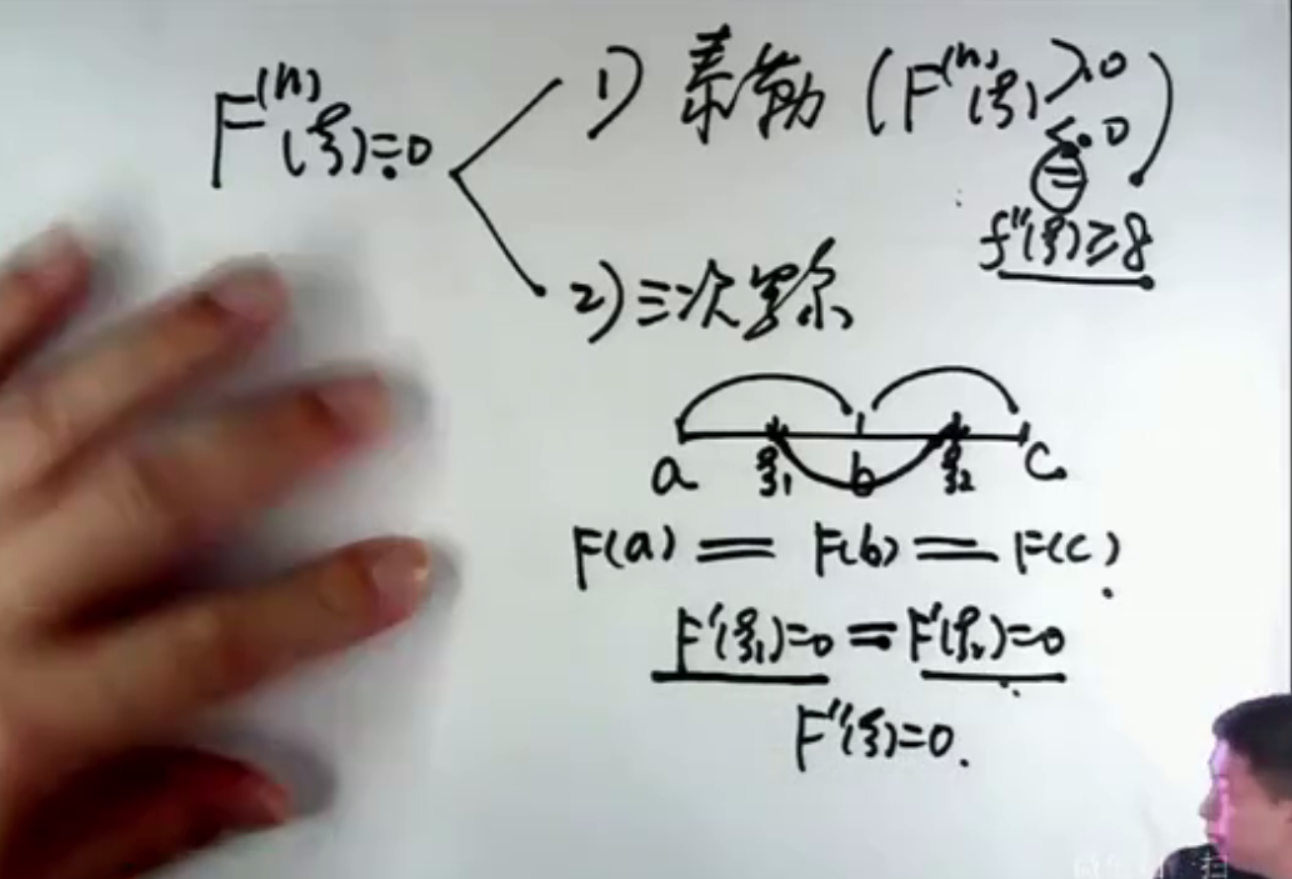 F⁽ⁿ⁾(ξ)=0
1) 泰勒 (F⁽ⁿ⁾(ξ) ≥0
≤0
=)
f''(ξ)≥8
2) 三次罗尔
a ξ₁ b ξ₂ c
F(a) = F(b) = F(c).
F'(ξ₁)=0 = F'(ξ₂)=0
F''(ξ)=0.